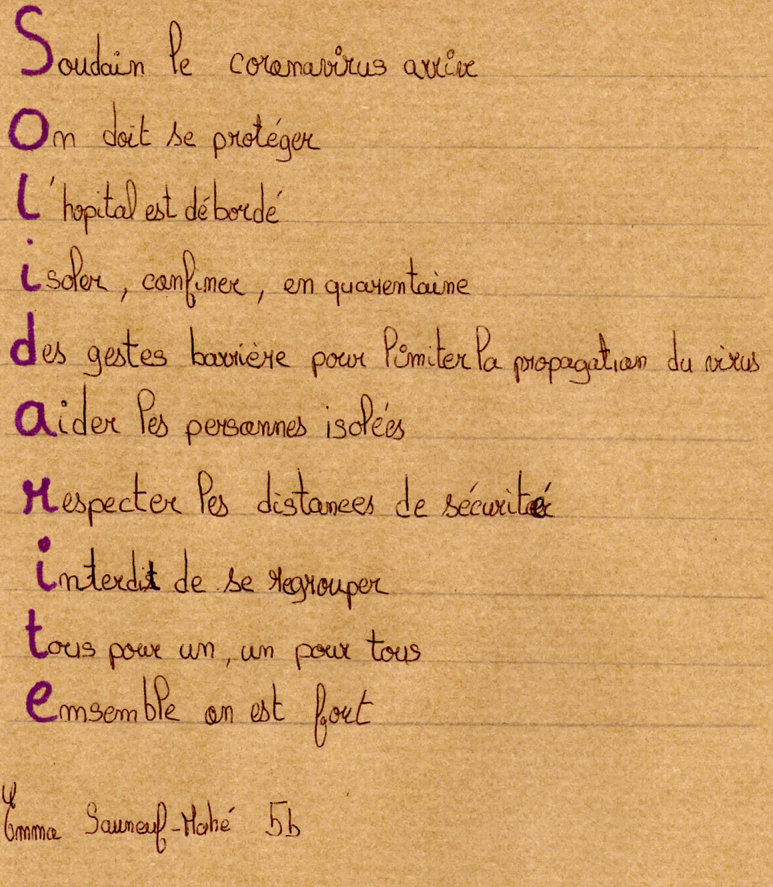 Soudain le coronavirus arrive
On doit se protéger
l'hopital est débordé
isoler, confiner, en quarentaine
des gestes barrière pour limiter la propagation du virus
aider les personnes isolées
respecter les distances de sécurité
interdit de se regrouper
tous pour un, un pour tous
ensemble on est fort
Emma Sauneuf-Mahé 5b